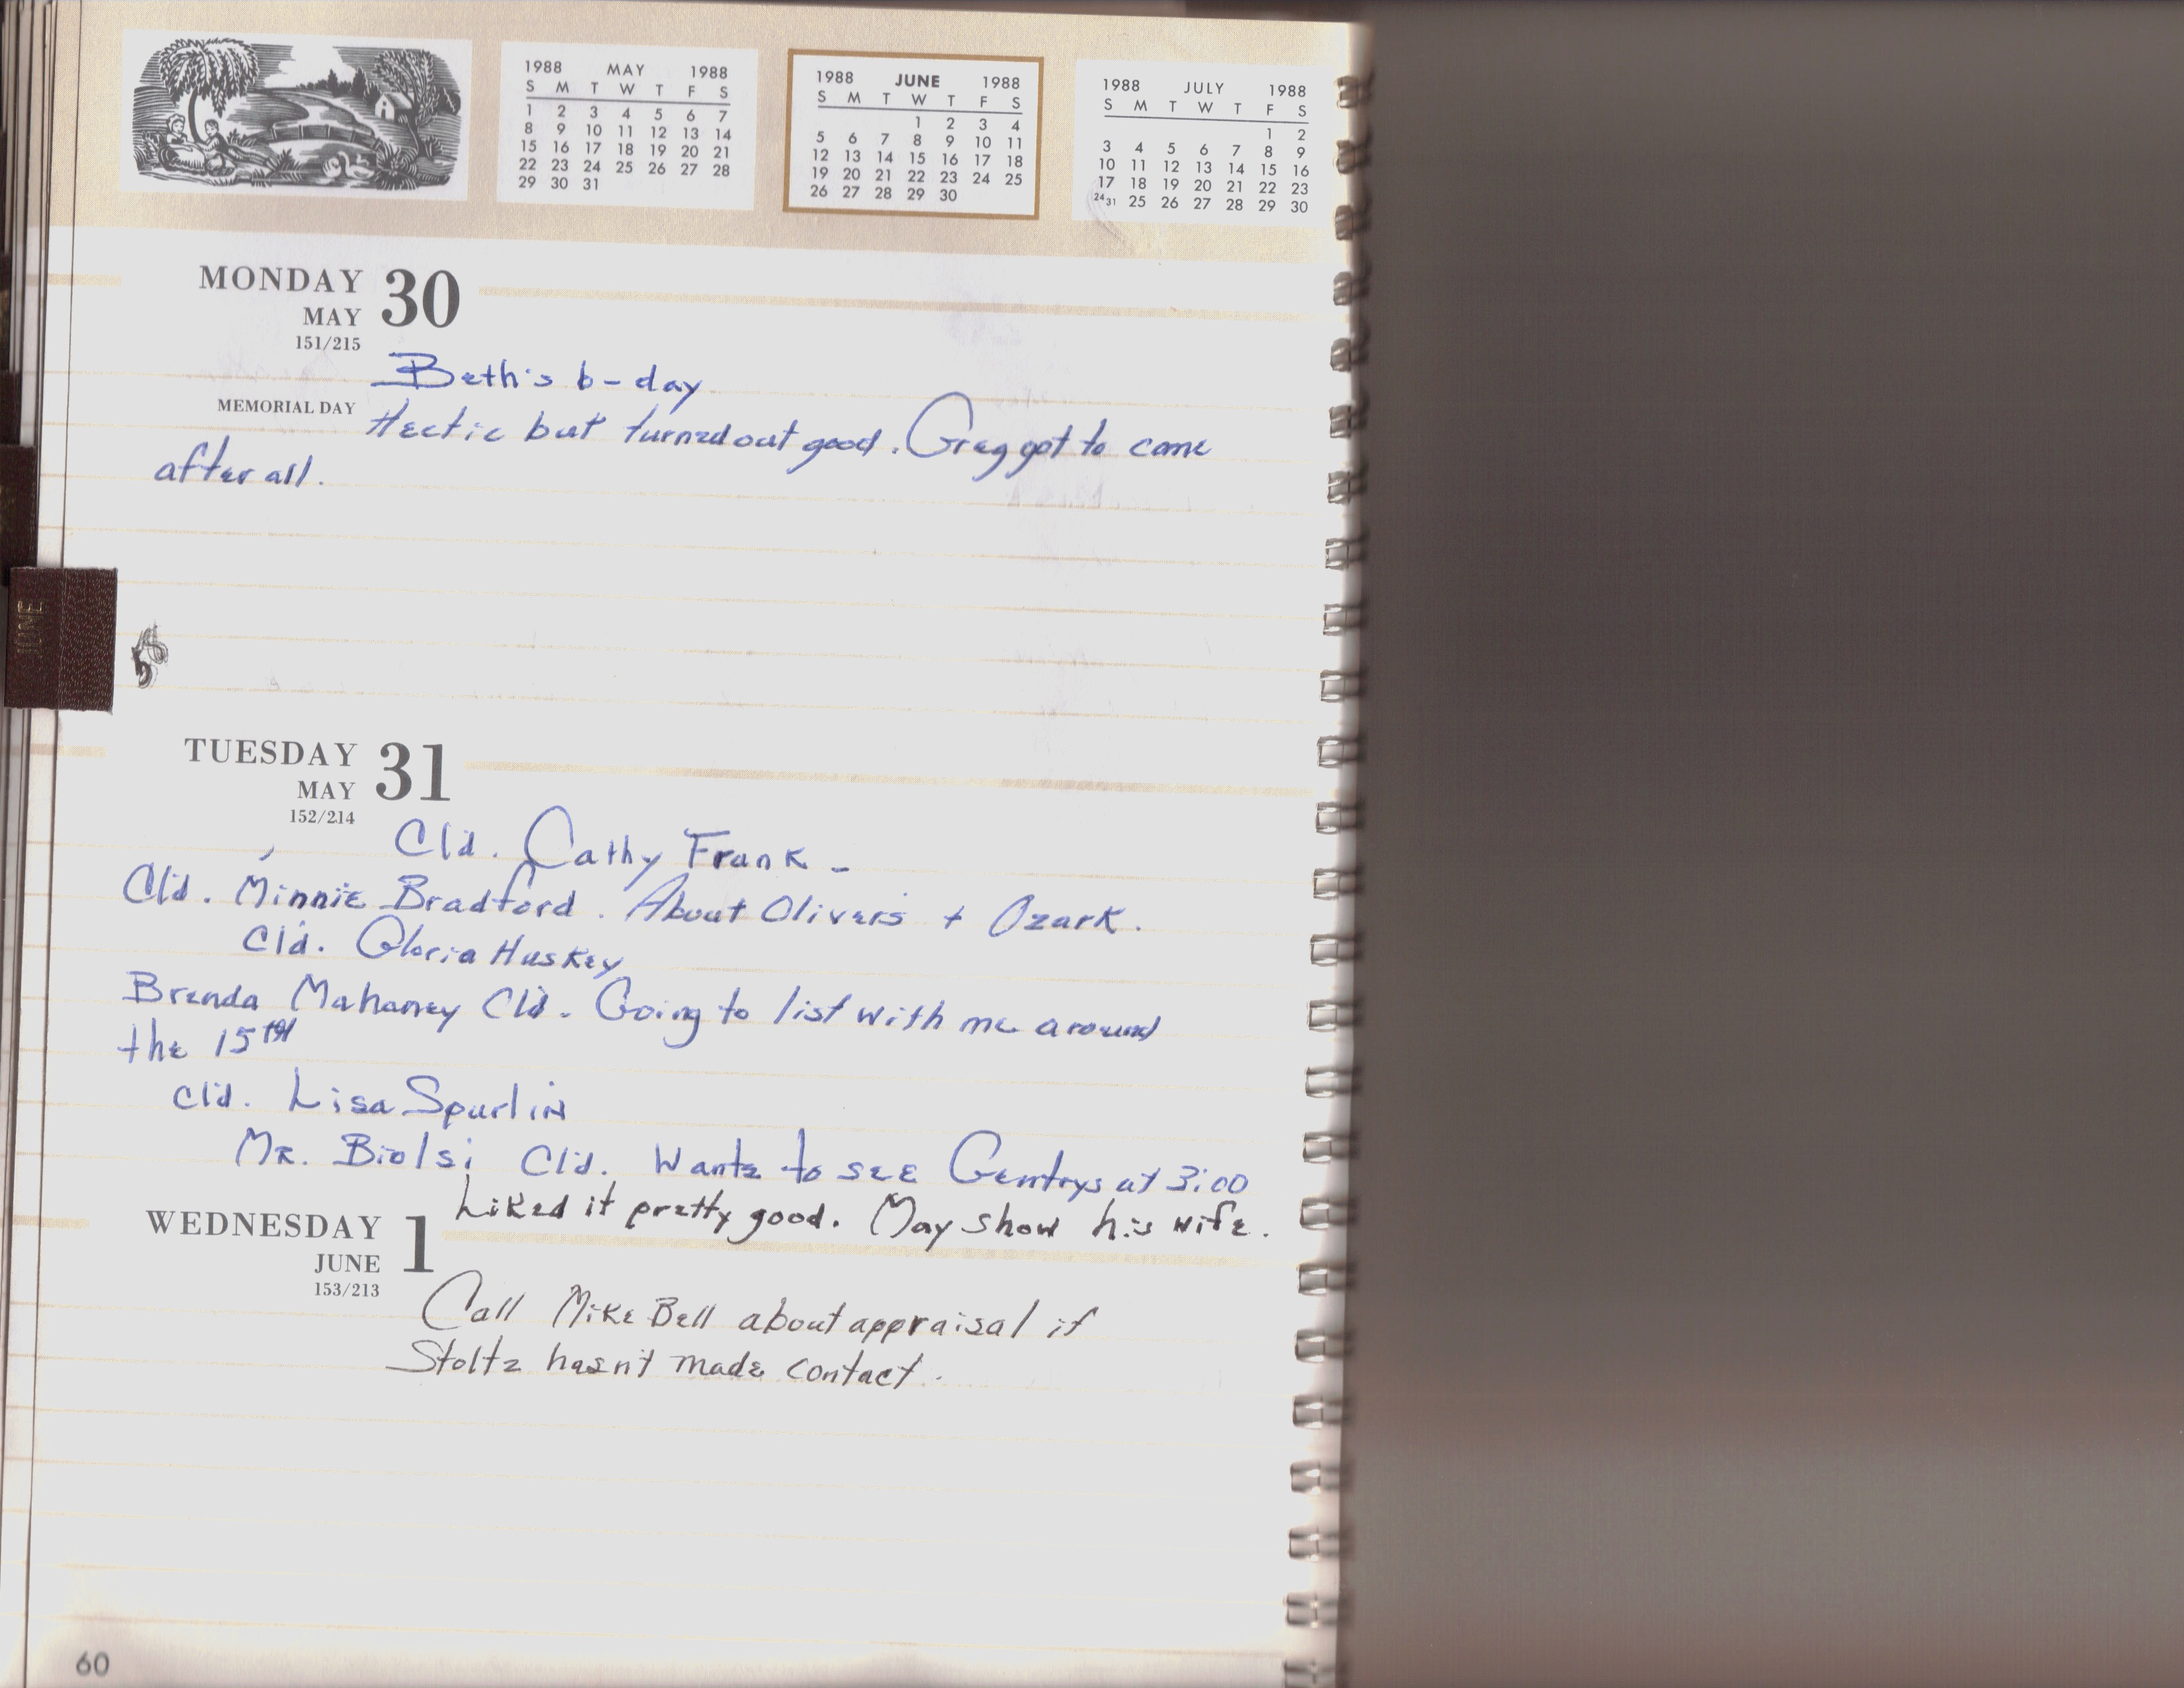 1988 MAY 1988
S M T W T F S
1 2 3 4 5 6 7
8 9 10 11 12 13 14
15 16 17 18 19 20 21
22 23 24 25 26 27 28
29 30 31
1988 JUNE 1988
S M T W T F S
1 2 3 4
5 6 7 8 9 10 11
12 13 14 15 16 17 18
19 20 21 22 23 24 25
26 27 28 29 30
1988 JULY 1988
S M T W T F S
1 2
3 4 5 6 7 8 9
10 11 12 13 14 15 16
17 18 19 20 21 22 23
24 31 25 26 27 28 29 30
MONDAY 30
MAY
151/215
Beth's b-day
MEMORIAL DAY
Hectic but turned out good. Greg got to come
after all.
JUNE
TUESDAY 31
MAY
152/214
Cld. Cathy Frank -
Cld. Minnie Bradford. About Olivers + Ozark.
Cld. Gloria Huskey
Brenda Mahaney Cld. Going to list with me around
the 15th
Cld. Lisa Spurlin
Mr. Biolsi Cld. Wants to see Gentrys at 3:00
Liked it pretty good. May show his wife.
WEDNESDAY 1
JUNE
153/213
Call Mike Bell about appraisal if
Stoltz hasn't made contact.
60